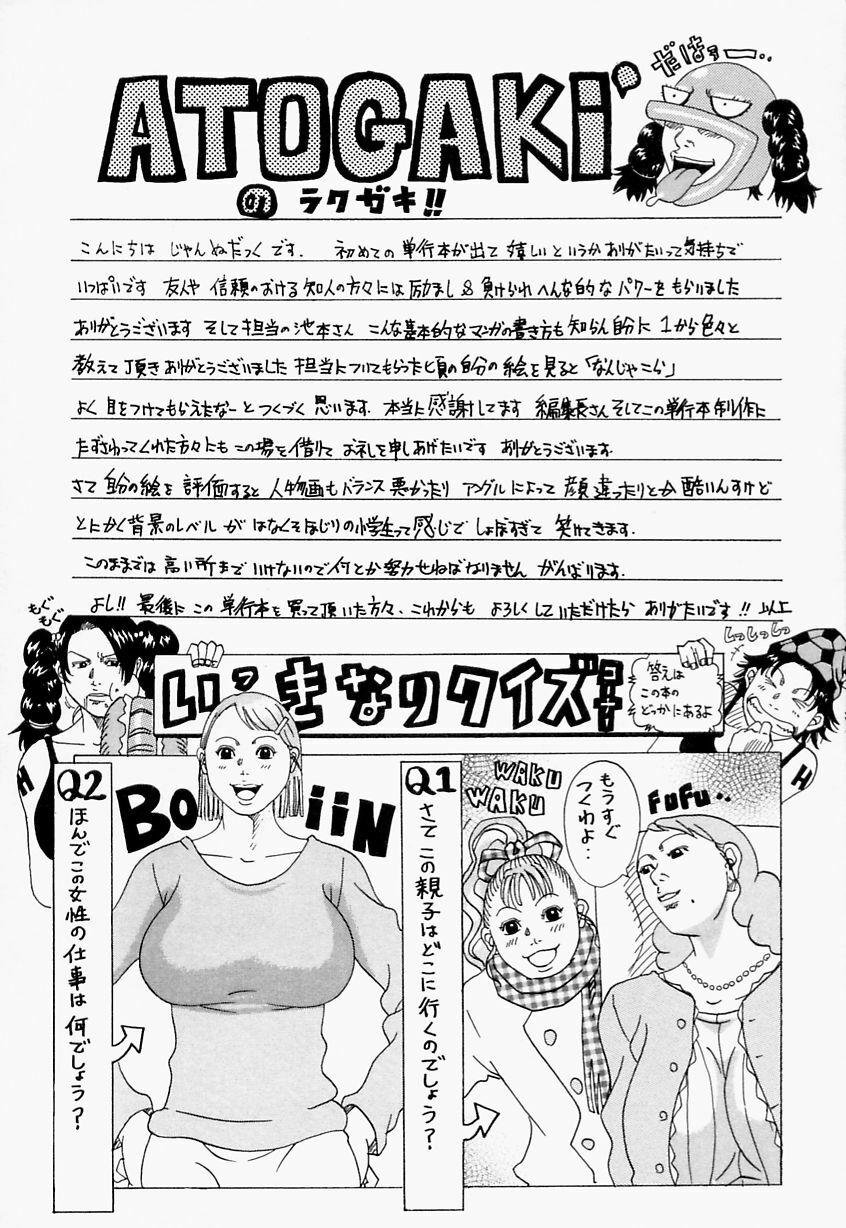 ATOGAKI
のラクガキ!!
だはァー‥
こんにちは じゃんぬだっくです. 初めての単行本が出て嬉しいというかありがたいって気持ちで
いっぱいです 友人や信頼のおける知人の方々には励まし&負けられへんな的なパワーをもらいました
ありがとうございます そして担当の池本さん こんな基本的なマンガの書き方も知らん自分に1から色々と
教えて頂きありがとうございました 担当についてもらった頃の自分の絵を見ると「なんじゃこら」
よく目をつけてもらえたなーとつくづく思います. 本当に感謝してます 編集長さんそしてこの単行本制作に
たずさわってくれた方々にもこの場を借りてお礼を申しあげたいです ありがとうございます.
さて自分の絵を評価すると人物画もバランス悪かったり アングルによって顔違ったりとか酷いんすけど
とにかく背景のレベルがはなくそほじりの小学生って感じでしょぼすぎて笑けてきます.
このままでは高い所までいけないので何とか努力せねばなりません がんばります.
よし!! 最後にこの単行本を買って頂いた方々、これからもよろしくしていただけたらありがたいです!! 以上
もぐもぐ
しっしっしっ
いっきなりクイズコーナー
答えは
この本の
どっかにあるよ
Q1
さてこの親子はどこに行くのでしょう?
WAKU
WAKU
もうすぐ
つくわよ‥
FUFU‥
Q2
ほんでこの女性の仕事は何でしょう?
BO iiN
H
H